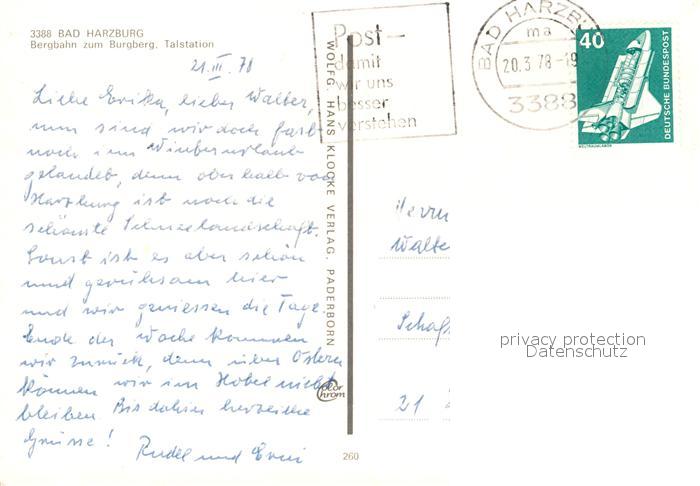 3388 BAD HARZBURG
Bergbahn zum Burgberg, Talstation
21.III.78
Liebe Erika, lieber Walter,
nun sind wir doch fast
noch im Winterurlaub
gelandet, denn oberhalb von
Harzburg ist noch die
schönste Schneelandschaft.
Sonst ist es aber schön
und geruhsam hier
und wir geniessen die Tage.
Ende der Woche kommen
wir zurück, denn über Ostern
können wir im Hotel nicht
bleiben. Bis dahin herzliche
Grüsse!
Rudel und Erni
WOLFG. HANS KLOCKE VERLAG, PADERBORN
Color
Chrom
260
Post-
damit
wir uns
besser
verstehen
BAD HARZBURG
ma
20.3.78-19
3388
40
DEUTSCHE BUNDESPOST
WELTRAUMLABOR
Herrn
Walte
Schaf
21
privacy protection
Datenschutz